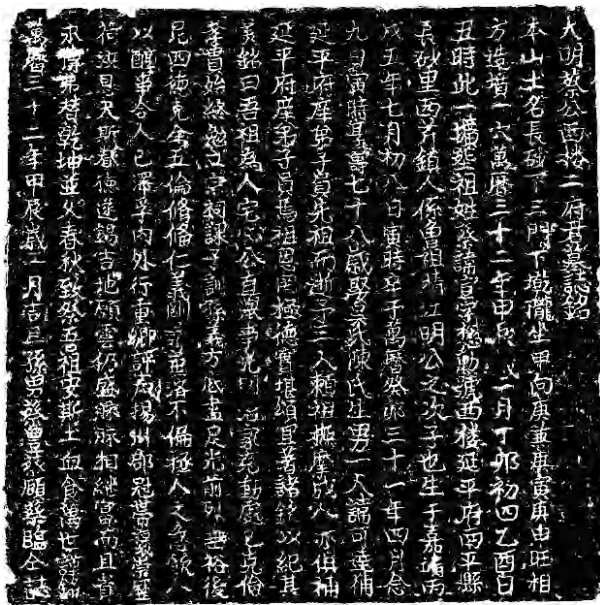 大明蔡公西樓二府君墓誌銘
本山土名長砂下三門下乾隴坐甲向庚兼庚寅庚申旺相
方造墳一穴萬曆三十二年甲辰歲一月丁卯初四乙酉日
丑時此一壙塟祖姓蔡諱宜字懋勳號西樓延平府南平縣
長砂里西芹鎮人係魯祖靖江明公之次子也生于嘉靖丙
戌五年七月初八日寅時卒于萬曆癸卯三十一年四月念
九日寅時享壽七十八歲娶吳氏陳氏生男一人諱可達補
延平府庠弟子員先祖而逝予三人賴祖撫摩成人亦俱補
延平府庠弟子員焉祖恩罔極德實堪頌宜著諸銘以紀其
美銘曰吾祖為人宅心公直處事光明治家克勤處己克儉
孝曾始終勉立宗祠課子訓孫義方俱盡足光前烈垂裕後
昆四德克全五倫脩備仁義開宗磊落不偏極人之急飲人
以醇事合人己澤孚內外行重鄉評名揚州郡冠帶裳
荷 恩天斯報德遂錫吉地願雲仍盛綿綿相繼富而且貴
永傳弗替乾坤並久春秋致祭吾祖安斯土血食萬世謹銘
萬曆三十二年甲辰歲一月吉旦孫男蔡 蔡顧蔡臨仝誌